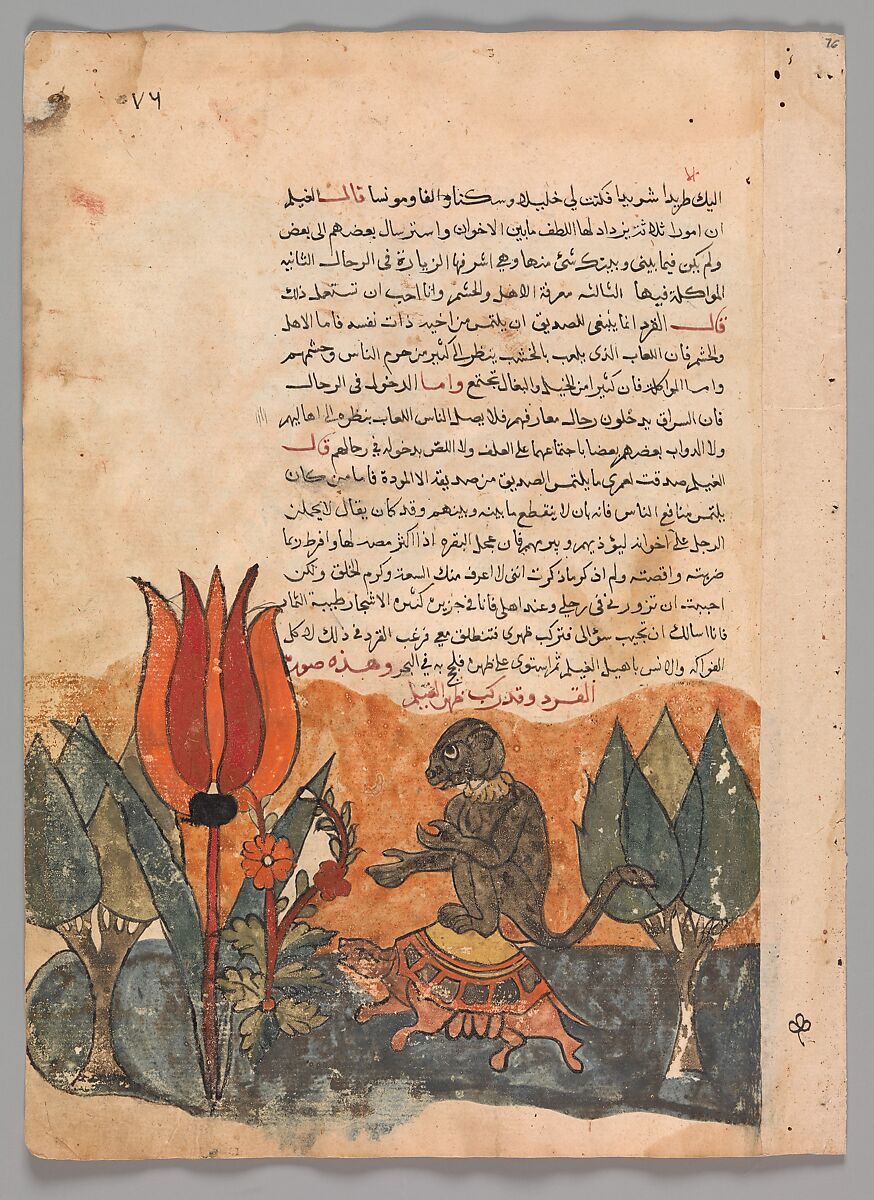 76
٧٦
اليك طريدا شريدا فكنت لي خليلا وسكنا والفا ومونسا قال الغيلم
ان امورا ثلاثة يزداد لها اللطف ما بين الاخوان واسترسال بعضهم الى بعض
ولم يكن فيما بيني وبينك شئ منها وهي اشرفها الزيارة في الرحال الثانيه
المواكلة فيها الثالثه معرفة الاهل والحشم وانا احب ان تستعمل ذلك
قال القرد انما ينبغي للصديق ان يلتمس من اخيه ذات نفسه فاما الاهل
والحشم فان اللعاب الذى يلعب بالخشب ينظر الى كثير من حرم الناس وحشمهم
واما المواكلة فان كثيرا من الخيل والبغال تجتمع واما الدخول في الرحال
فان السراق يدخلون رحال معارفهم فلا يصل الناس اللعاب بنظره الى اهاليهم
ولا الدواب بعضهم بعضا باجتماعها على العلف ولا اللص بدخوله في رحالهم قال
الغيلم صدقت لعمري ما يلتمس الصديق من صديقه الا المودة فاما من كان
يلتمس منافع الناس فانه بان لا ينقطع ما بينه وبينهم وقد كان يقال لا يحملن
الرجل على اخوانه ليؤذيهم ويبرمهم فان عجل البقره اذا اكثر مصه لها وافرط ربما
ضربته واقصته ولم اذكر ما ذكرت انني لا اعرف منك السعة وكرم الخلق ولكن
احببت ان تزورني في رحلي وعند اهلي فانا في جزيرة كثيره الاشجار طيبة الثمار
فانا اسالك ان تجيب سؤالى فتركب ظهرى فتنطلق معي فرغب القرد في ذلك لاكل
الفواكه والانس باهيل الغيلم ثم استوى على ظهره فلجج به في البحر وهذه صورة
القرد وقد ركب ظهر الغيلم